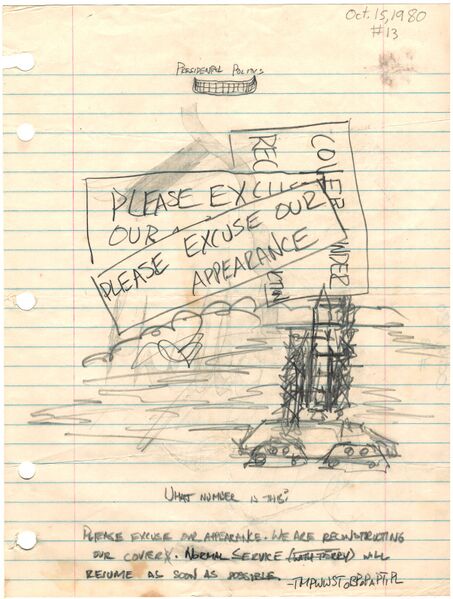 Oct. 15, 1980
#13
PRESIDENTAL POLITICS
COVER UNDER
REC KTION
PLEASE EXCUSE
OUR
PLEASE EXCUSE OUR
APPEARANCE
WHAT NUMBER IS THIS?
PLEASE EXCUSE OUR APPEARANCE. WE ARE RECONSTRUCTING
OUR COVERS. NORMAL SERVICE (WITH TERRY) WILL
RESUME AS SOON AS POSSIBLE.